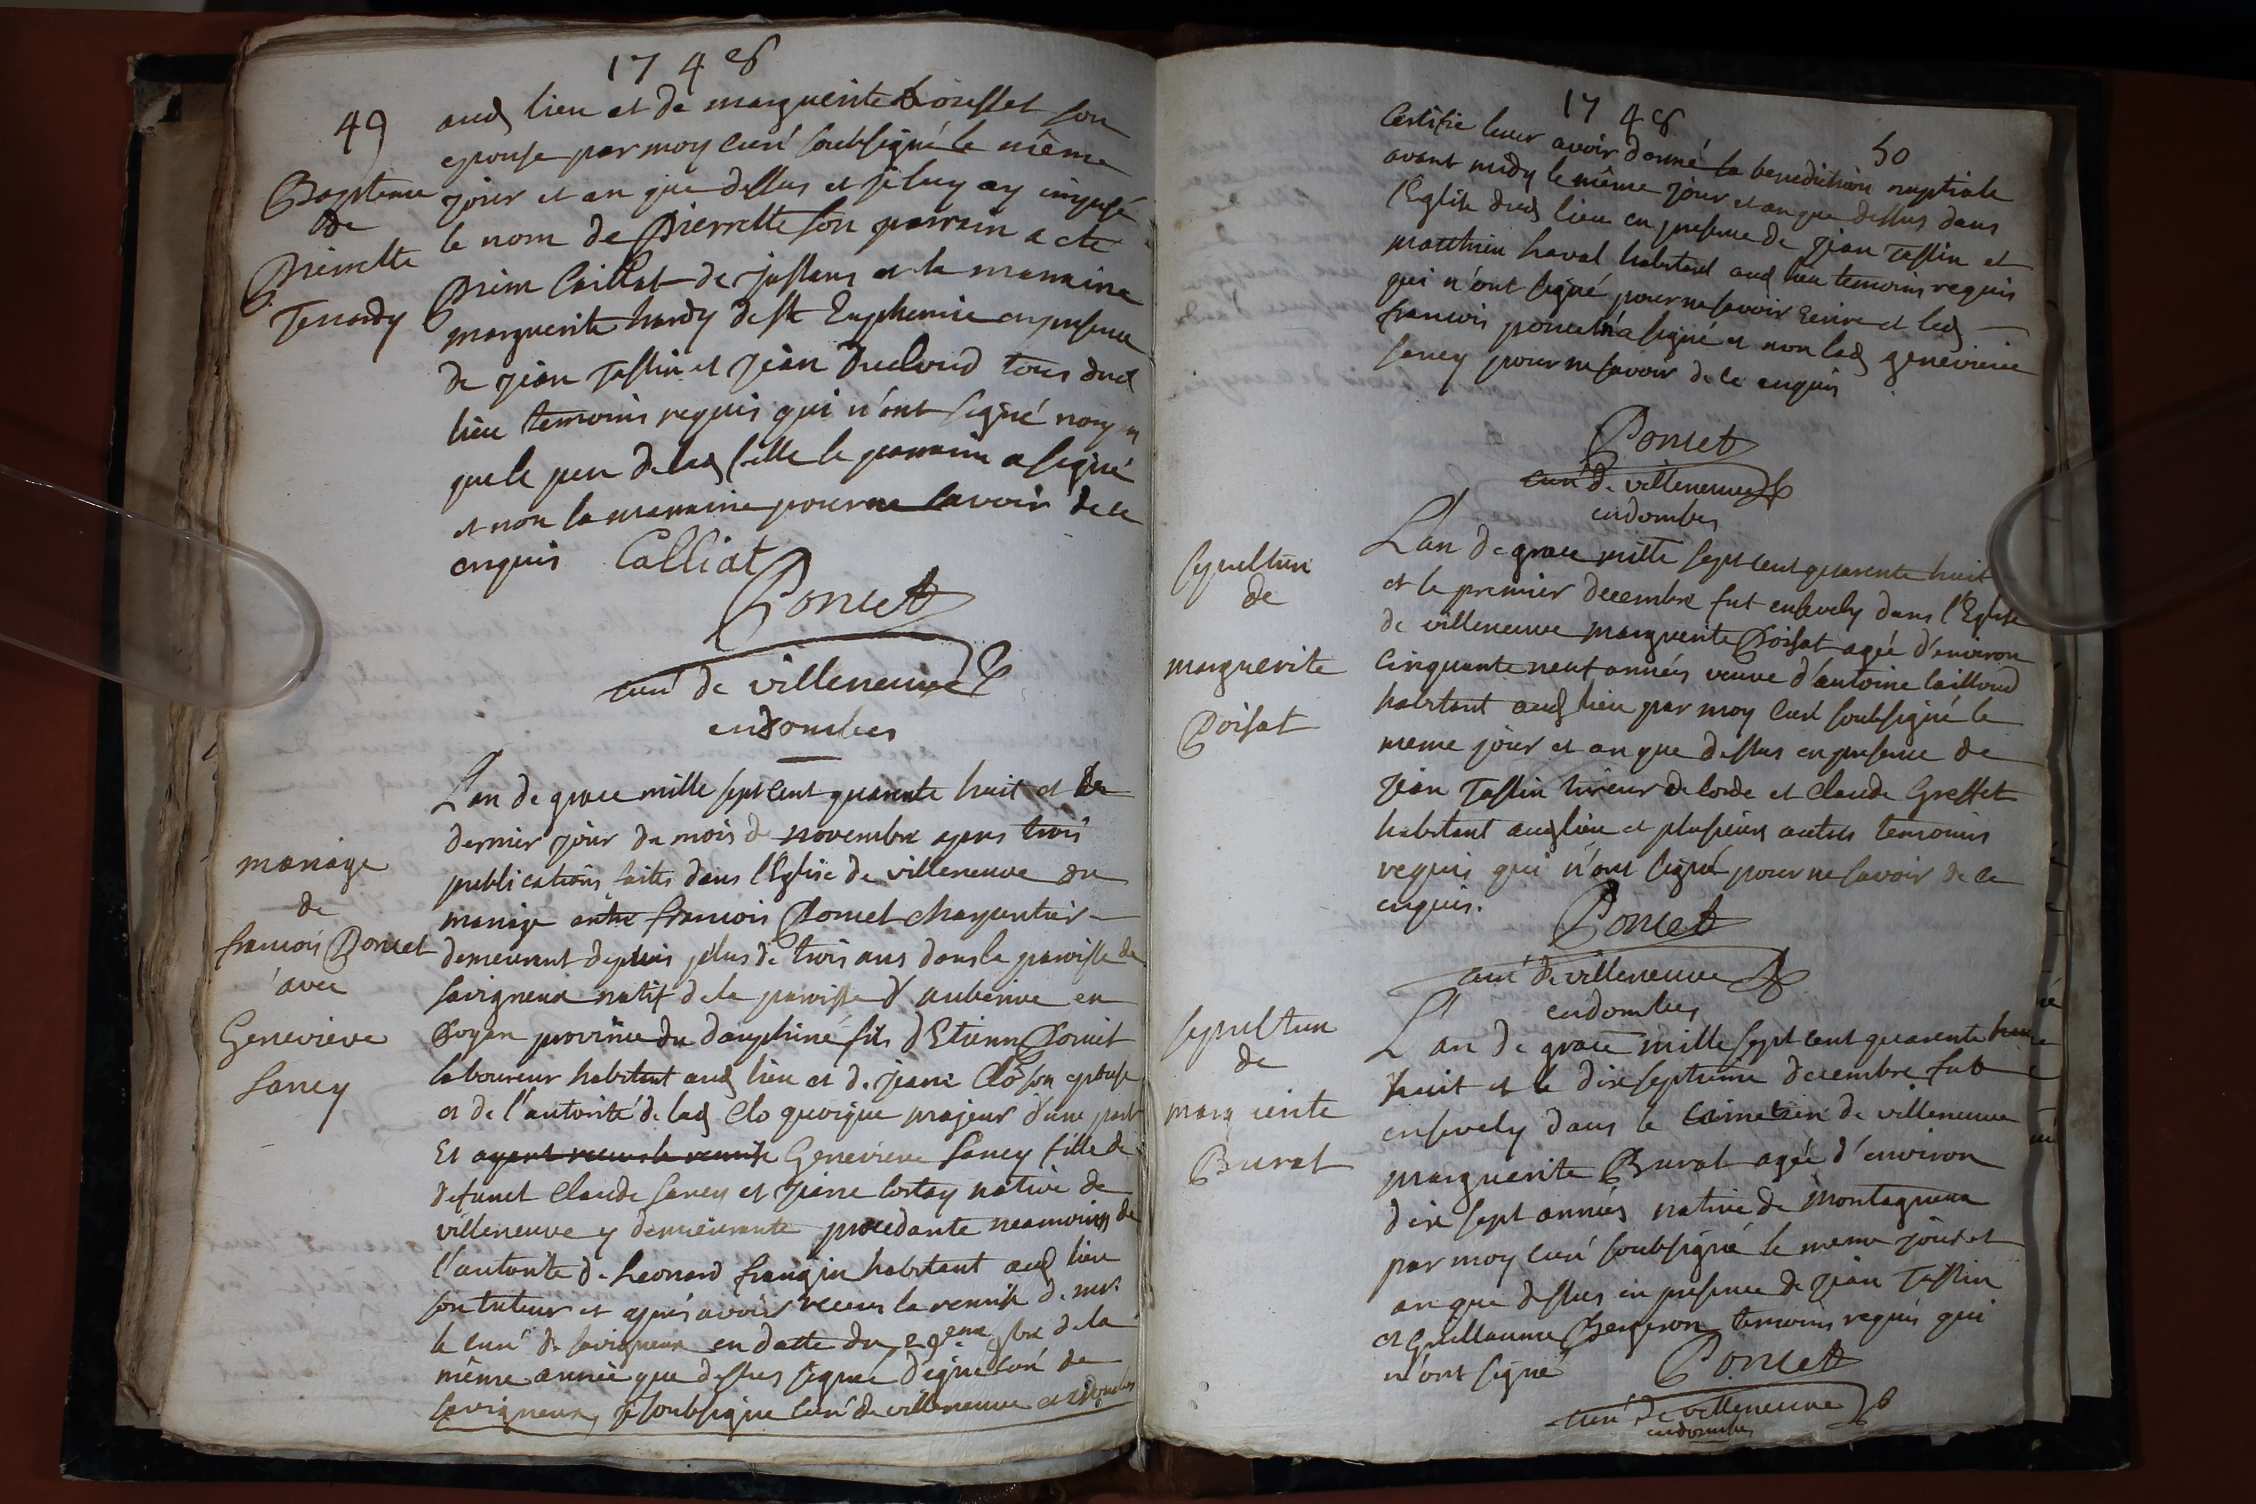 1748
49
Bapteme
de
Pierrette
Tenardy
aud lieu et de marguerite son
epouse par moy curé soubsigné le même
jour et an que dessus et je luy ay imposé
le nom de Pierrette son parrain a eté
de jassans et la marraine
marguerite hardy de ste Euphemie en presence
de jean Tassin et jean Ducloud tous dud
lieu temoins requis qui n'ont signé non plus
que le pere de lad fille le parrain a signé
et non la marraine pour ne savoir de ce
enquis Calliat
Poncet
curé de villeneuve
endombes
mariage
de
francois Poncet
avec
Genevieve
Sancy
L'an de grace mille sept cent quarente huit et le
dernier jour du mois de novembre apres trois
publications faites dans l'Eglise de villeneuve du
mariage entre francois Poncet charpentier
demeurant depuis plus de trois ans dans la paroisse de
savigneux natif de la paroisse d'auberive en
Royan province du dauphiné fils d'Etienne Poncet
laboureur habitant aud lieu et de jeane Clo son epouse
et de l'autorité de lad Clo quoique majeur d'une part
Et ayant receus la remise Genevieve Sancy fille de
defunct Claude Sancy et jeane native de
villeneuve y demeurante procedante neamoins de
l'autorité de Leonard frangin habitant aud lieu
son tuteur et aprés avoir receus la remise de mr.
le curé de savigneux en datte du 29eme 9bre de la
même année que dessus signée curé de
savigneux, je soubsigné curé de villeneuve en dombes
1748
50
Certifie leur avoir donné la benediction nuptiale
avant midy le même jour et an que dessus dans
l'Eglise dud lieu en presence de jean Tassin et
matthieu haval habitant aud lieu temoins requis
qui n'ont signé pour ne savoir Ecrire et led
francois poncet a signé et non lad genevieve
sancy pour ne savoir de ce enquis
Poncet
curé de villeneuve
endombes
sepulture
de
marguerite
Poisat
L'an de grace mille sept cent quarente huit
et le premier decembre fut ensevely dans l'Eglise
de villeneuve marguerite Poisat agée d'environ
cinquante neuf années veuve d'antoine Cailloud
habitant aud lieu par moy curé soubsigné le
meme jour et an que dessus en presence de
jean Tassin tireur de corde et claude Greffet
habitant aud lieu et plusieurs autres temoins
requis qui n'ont signé pour ne savoir de ce
enquis.
Poncet
curé de villeneuve
endombes
sepulture
de
marguerite
Burat
L'an de grace mille sept cent quarente
huit et le dixseptieme decembre fut
ensevely dans le cimetiere de villeneuve
marguerite Burat agée d'environ
dix sept années native de Montagneux
par moy curé soubsigné le meme jour et
an que dessus en presence de jean Tassin
et Guillaume Bergeron temoins requis qui
n'ont signé
Poncet
curé de villeneuve
endombes